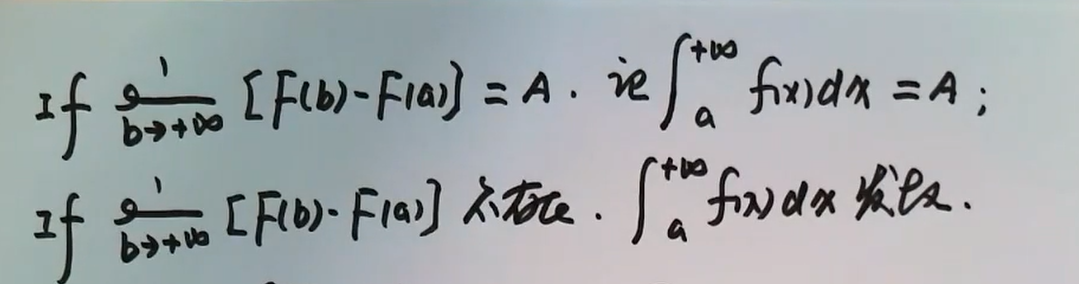 If lim b→+∞ [F(b)-F(a)] = A. 记 ∫_a^{+∞} f(x)dx = A;
If lim b→+∞ [F(b)-F(a)] 不存在. ∫_a^{+∞} f(x)dx 发散.